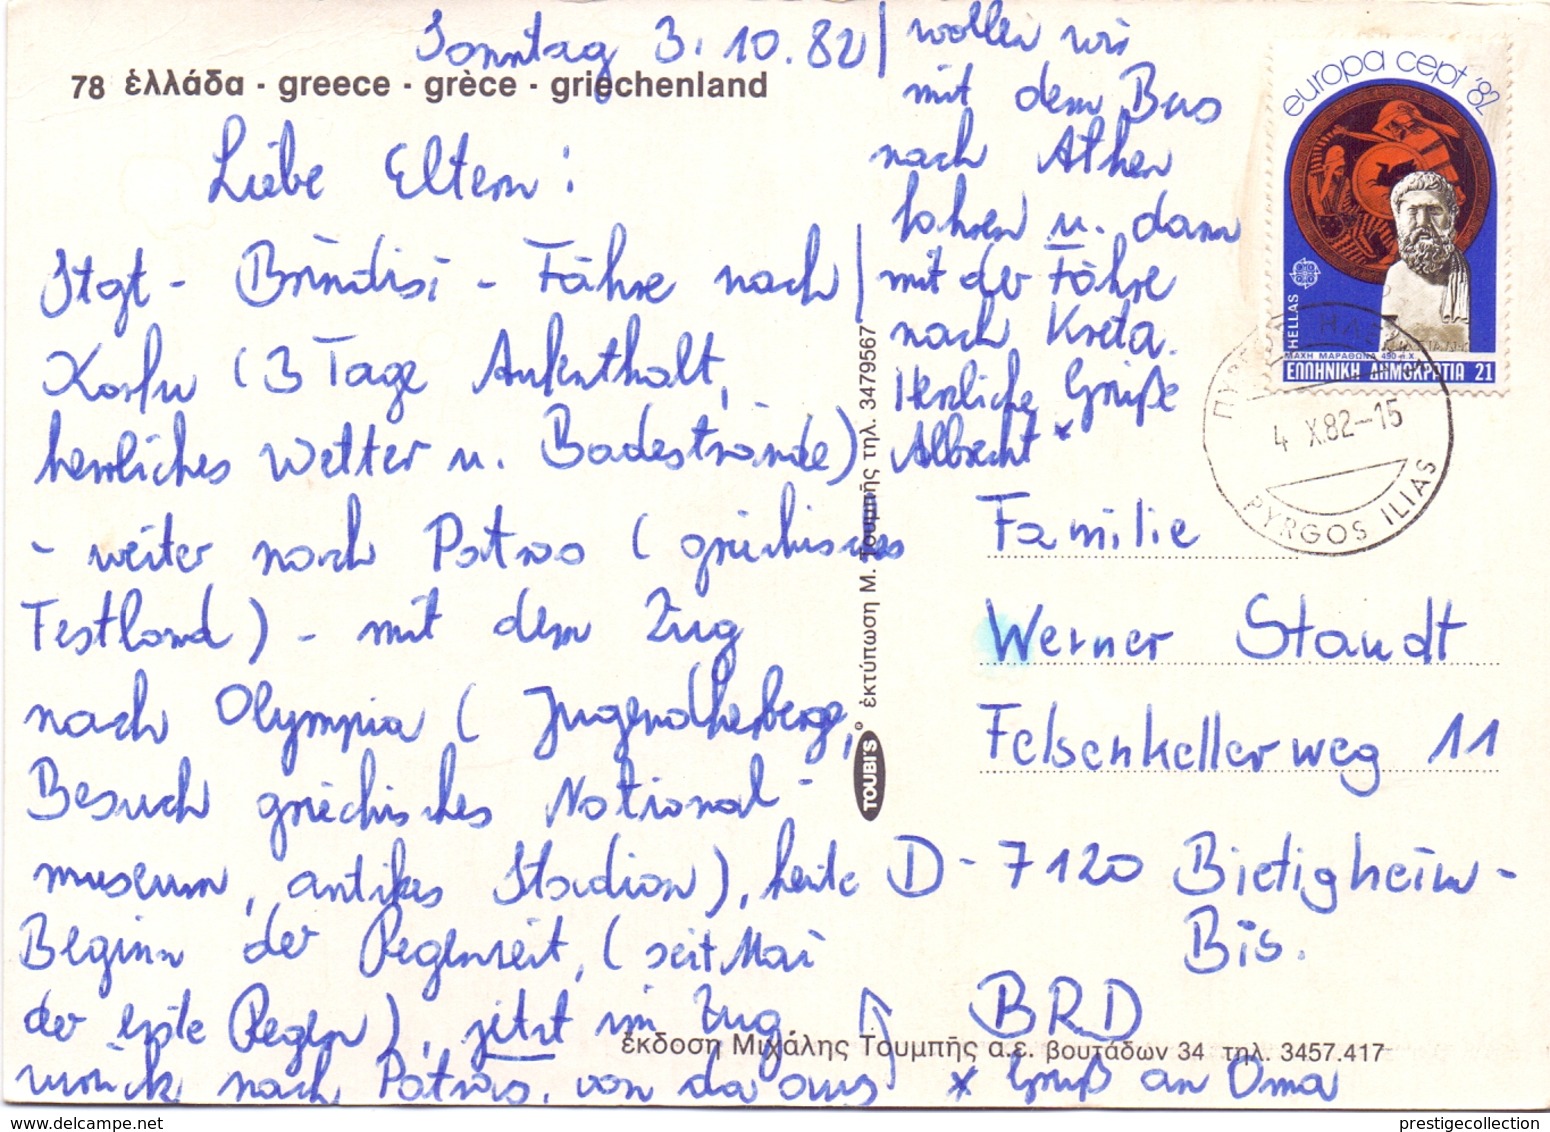 Sonntag 3.10.82
78 ἑλλάδα - greece - grèce - griechenland
Liebe Eltern!
Stgt - Brindisi - Fähre nach
Korfu (3 Tage Aufenthalt,
herrliches Wetter u. Badestrände)
- weiter nach Patras (griechisches
Festland) - mit dem Zug
nach Olympia (Jugendherberge,
Besuch griechisches National-
museum, antikes Stadion), heute
Beginn der Regenzeit, (seit Mai
der erste Regen), jetzt im Zug
zurück nach Patras, von da aus
wollen wir
mit dem Bus
nach Athen
fahren u. dann
mit der Fähre
nach Kreta.
Herzliche Grüße
Albrecht *
* Gruß an Oma
Familie
Werner Staudt
Felsenkellerweg 11
D-7120 Bietigheim-
Bis.
BRD
TOUBI'S ἐκτύπωση Μ. Τουμπῆς τηλ. 3479567
ἔκδοση Μιχάλης Τουμπῆς α.ε. βουτάδων 34 τηλ. 3457.417
europa cept '82
HELLAS
ΜΑΧΗ ΜΑΡΑΘΩΝΑ 490 π.Χ
ΕΛΛΗΝΙΚΗ ΔΗΜΟΚΡΑΤΙΑ 21
4 X.82-15
PYRGOS ILIAS
delcampe.net
prestigecollection